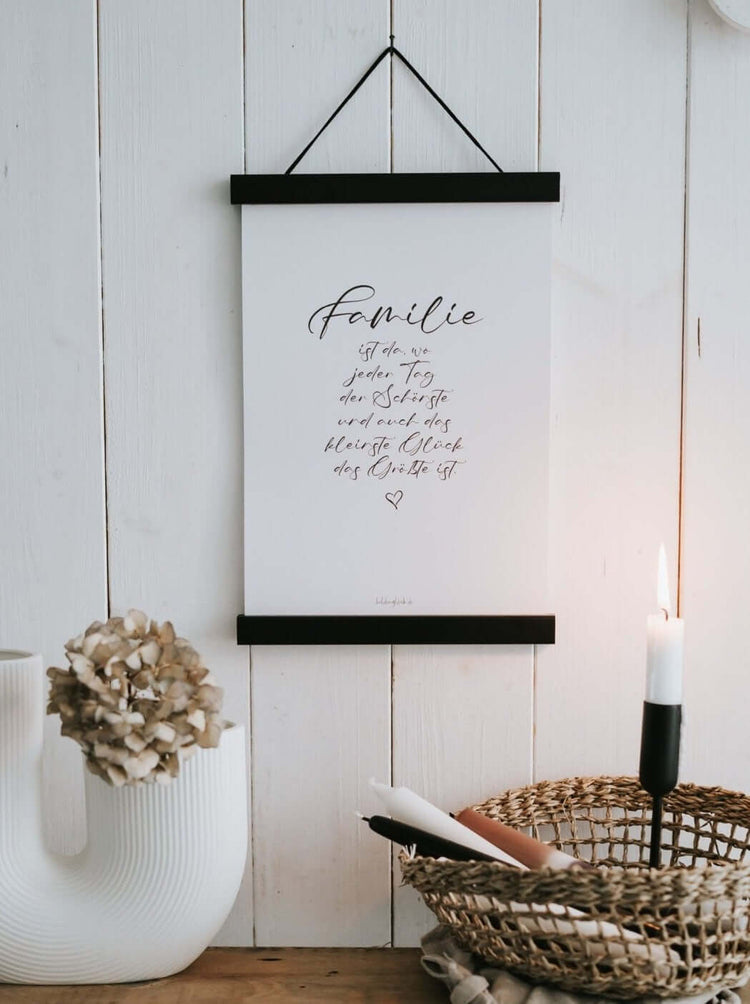 Familie
ist da, wo
jeder Tag
der Schönste
und auch das
kleinste Glück
das Größte ist.